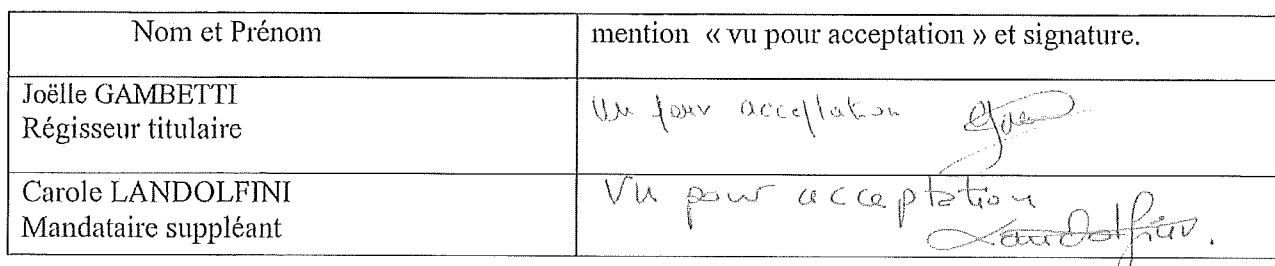 Nom et Prénom
mention « vu pour acceptation » et signature.
Joëlle GAMBETTI
Régisseur titulaire
Vu pour acceptation
Carole LANDOLFINI
Mandataire suppléant
Vu pour acceptation
Landolfini.